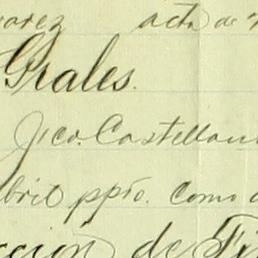 varez acta de
Grales.
Fco. Castellan
bril ppio. como
ccion de Fi